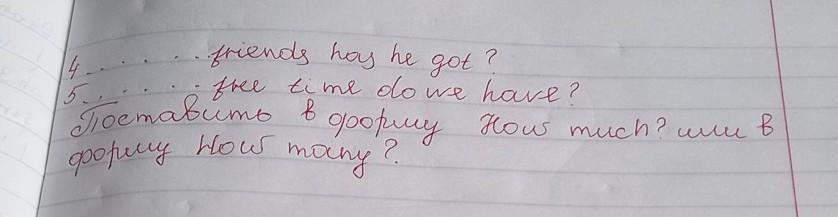 4.......friends has he got?
5.......free time do we have?
Поставить в форму How much? или в
форму How many?